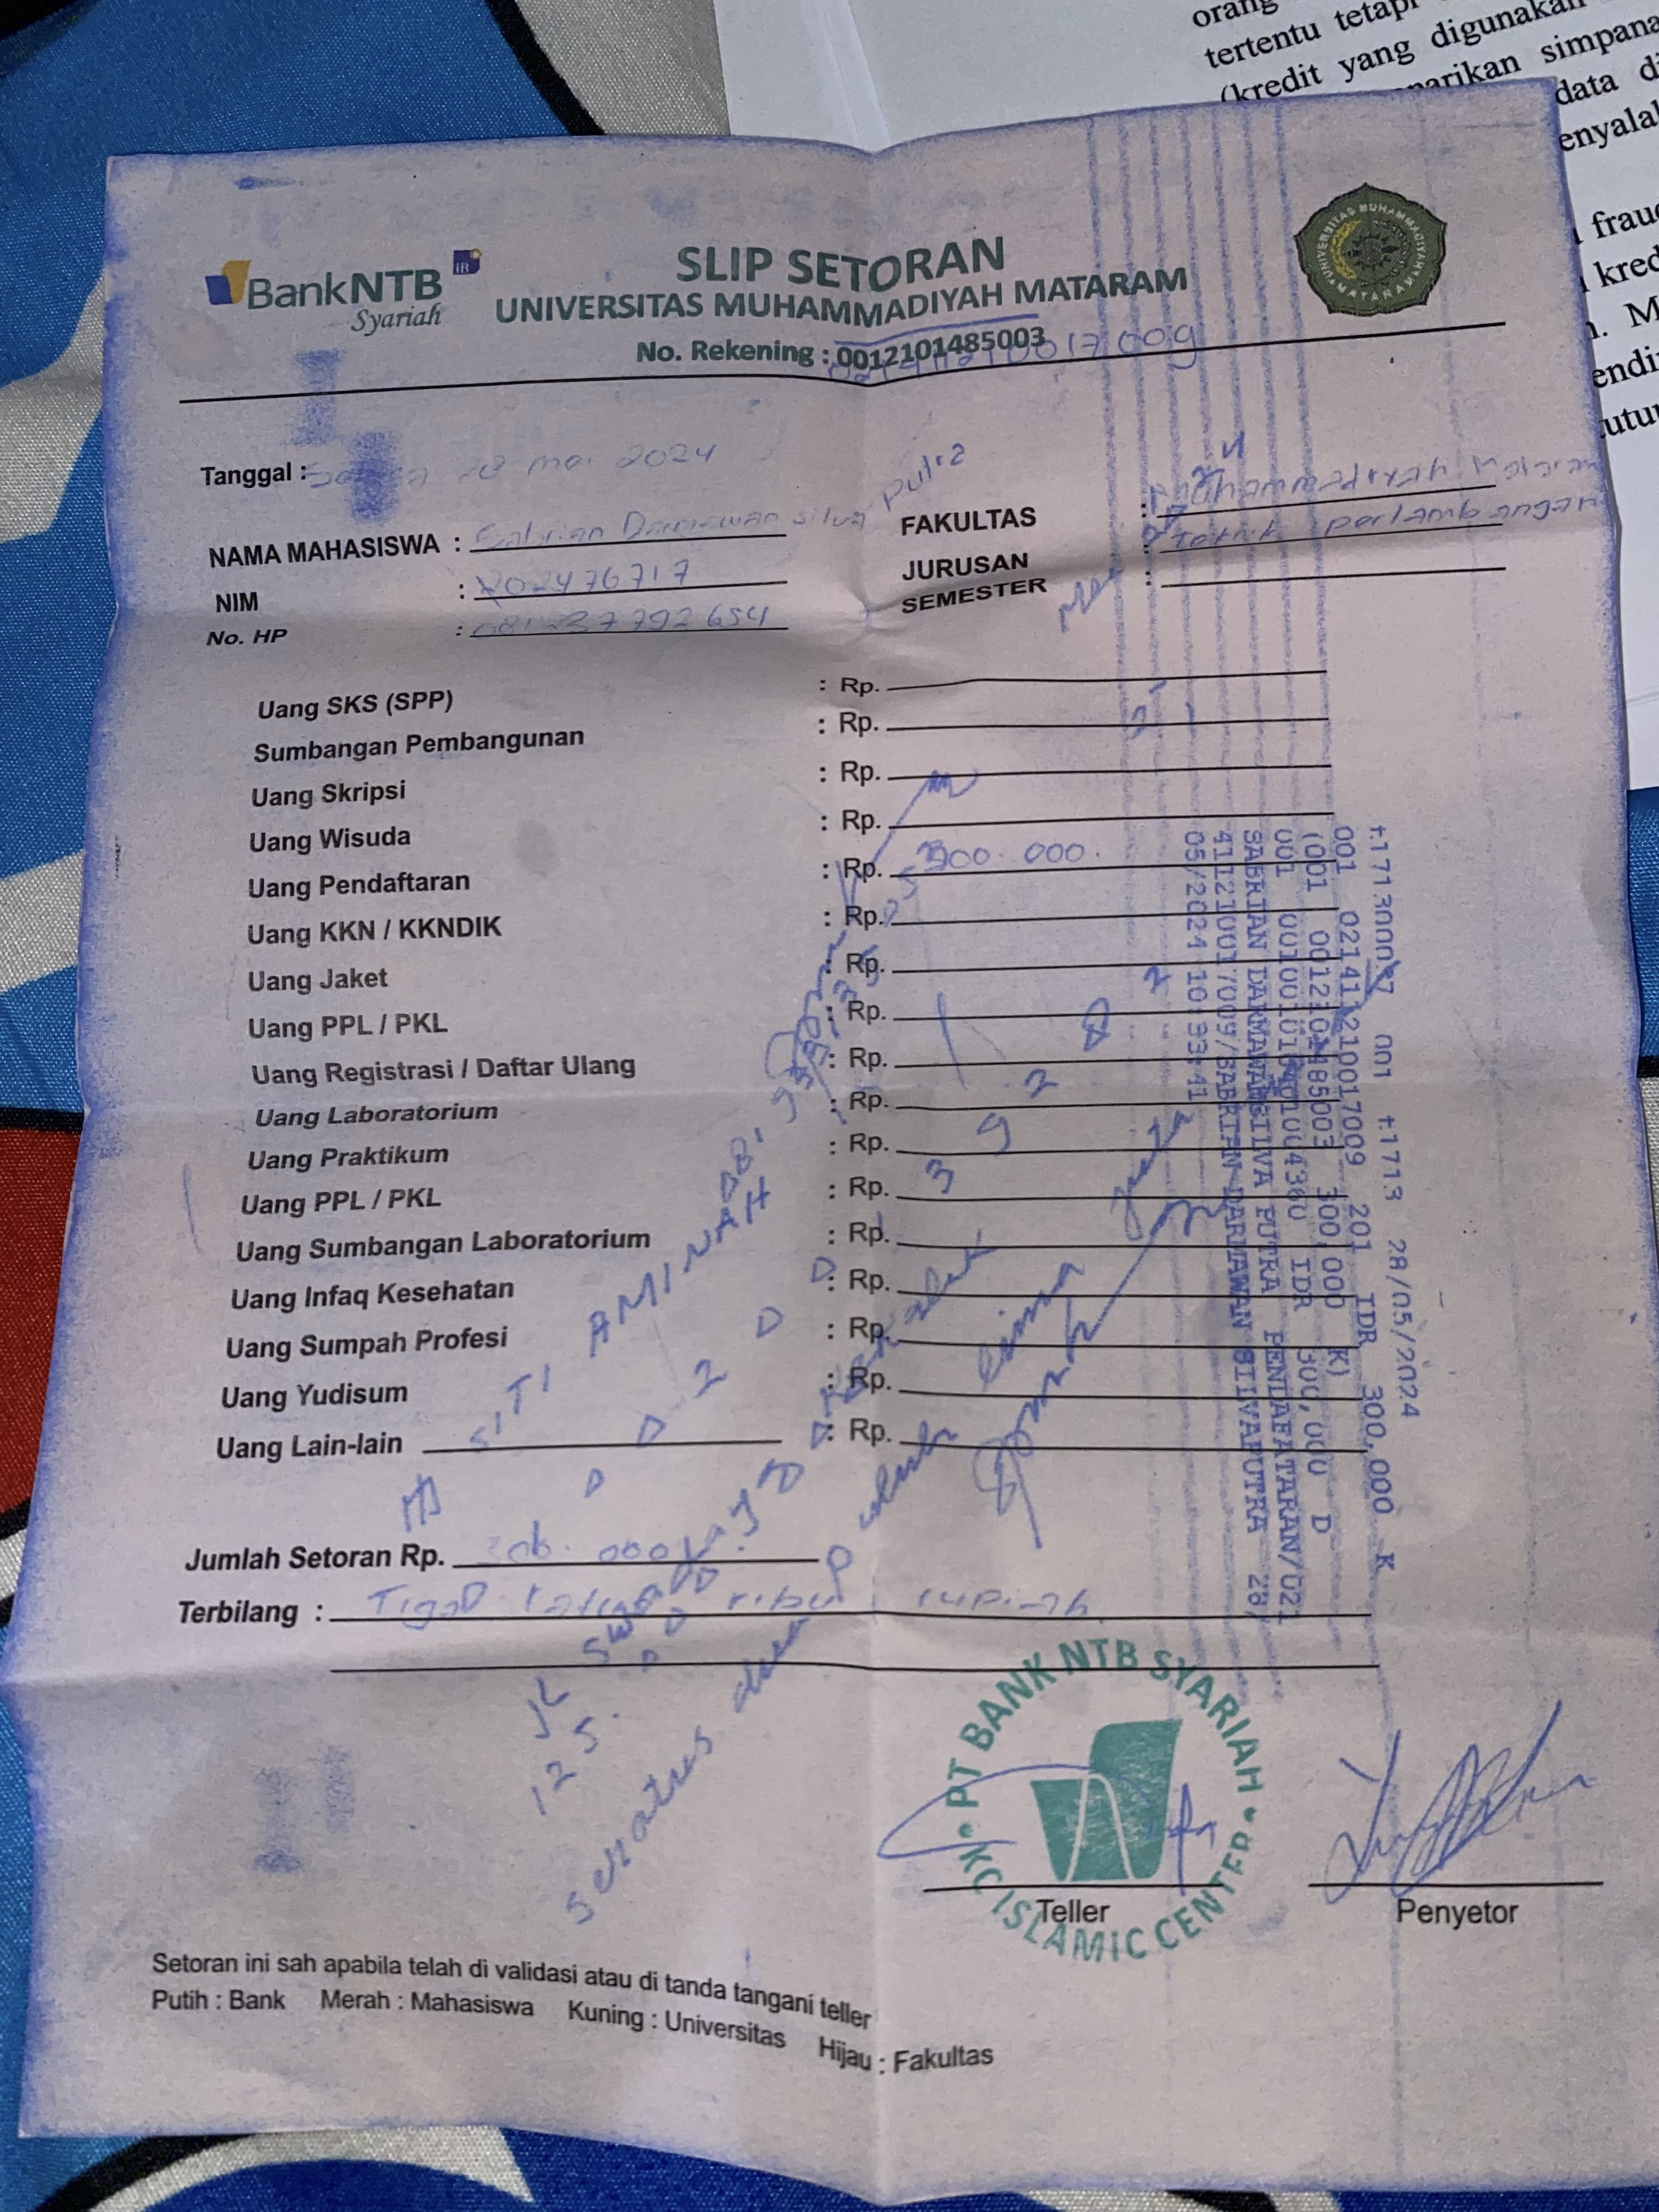 orang
tertentu tetapi
(kredit yang digunakan
simpana
data di
fraud
kred
BankNTB
Syariah
SLIP SETORAN
UNIVERSITAS MUHAMMADIYAH MATARAM
No. Rekening : 0012101485003
UNIVERSITAS MUHAMMADIYAH MATARAM
Tanggal : 28 mei 2024
NAMA MAHASISWA : Sabrian Darmawan Silva putra
NIM : 202476717
No. HP : 081237792654
FAKULTAS : Muhammadiyah Mataram
JURUSAN : Teknik pertambangan
SEMESTER :
Uang SKS (SPP) : Rp.
Sumbangan Pembangunan : Rp.
Uang Skripsi : Rp.
Uang Wisuda : Rp.
Uang Pendaftaran : Rp. 300.000.
Uang KKN / KKNDIK : Rp.
Uang Jaket : Rp.
Uang PPL / PKL : Rp.
Uang Registrasi / Daftar Ulang : Rp.
Uang Laboratorium : Rp.
Uang Praktikum : Rp.
Uang PPL / PKL : Rp.
Uang Sumbangan Laboratorium : Rp.
Uang Infaq Kesehatan : Rp.
Uang Sumpah Profesi : Rp.
Uang Yudisum : Rp.
Uang Lain-lain : Rp.
SITI AMINAH
Jumlah Setoran Rp. 300.000
Terbilang : Tiga ratus ribu rupiah
seratus dua puluh lima juta
t1713 28/05/2024
001 021411210017009 201 IDR 300,000 K
(001 0012101485003 300,000 K)
001 IDR 300,000 D
SABRIAN DARMAWAN SILVA PUTRA PENDAFATARAN/021
411210017009/SABRIAN DARMAWAN SILVAPUTRA 28/
05/2024 10:33:41
PT BANK NTB SYARIAH
KC ISLAMIC CENTER
Teller
Penyetor
Setoran ini sah apabila telah di validasi atau di tanda tangani teller
Putih : Bank Merah : Mahasiswa Kuning : Universitas Hijau : Fakultas